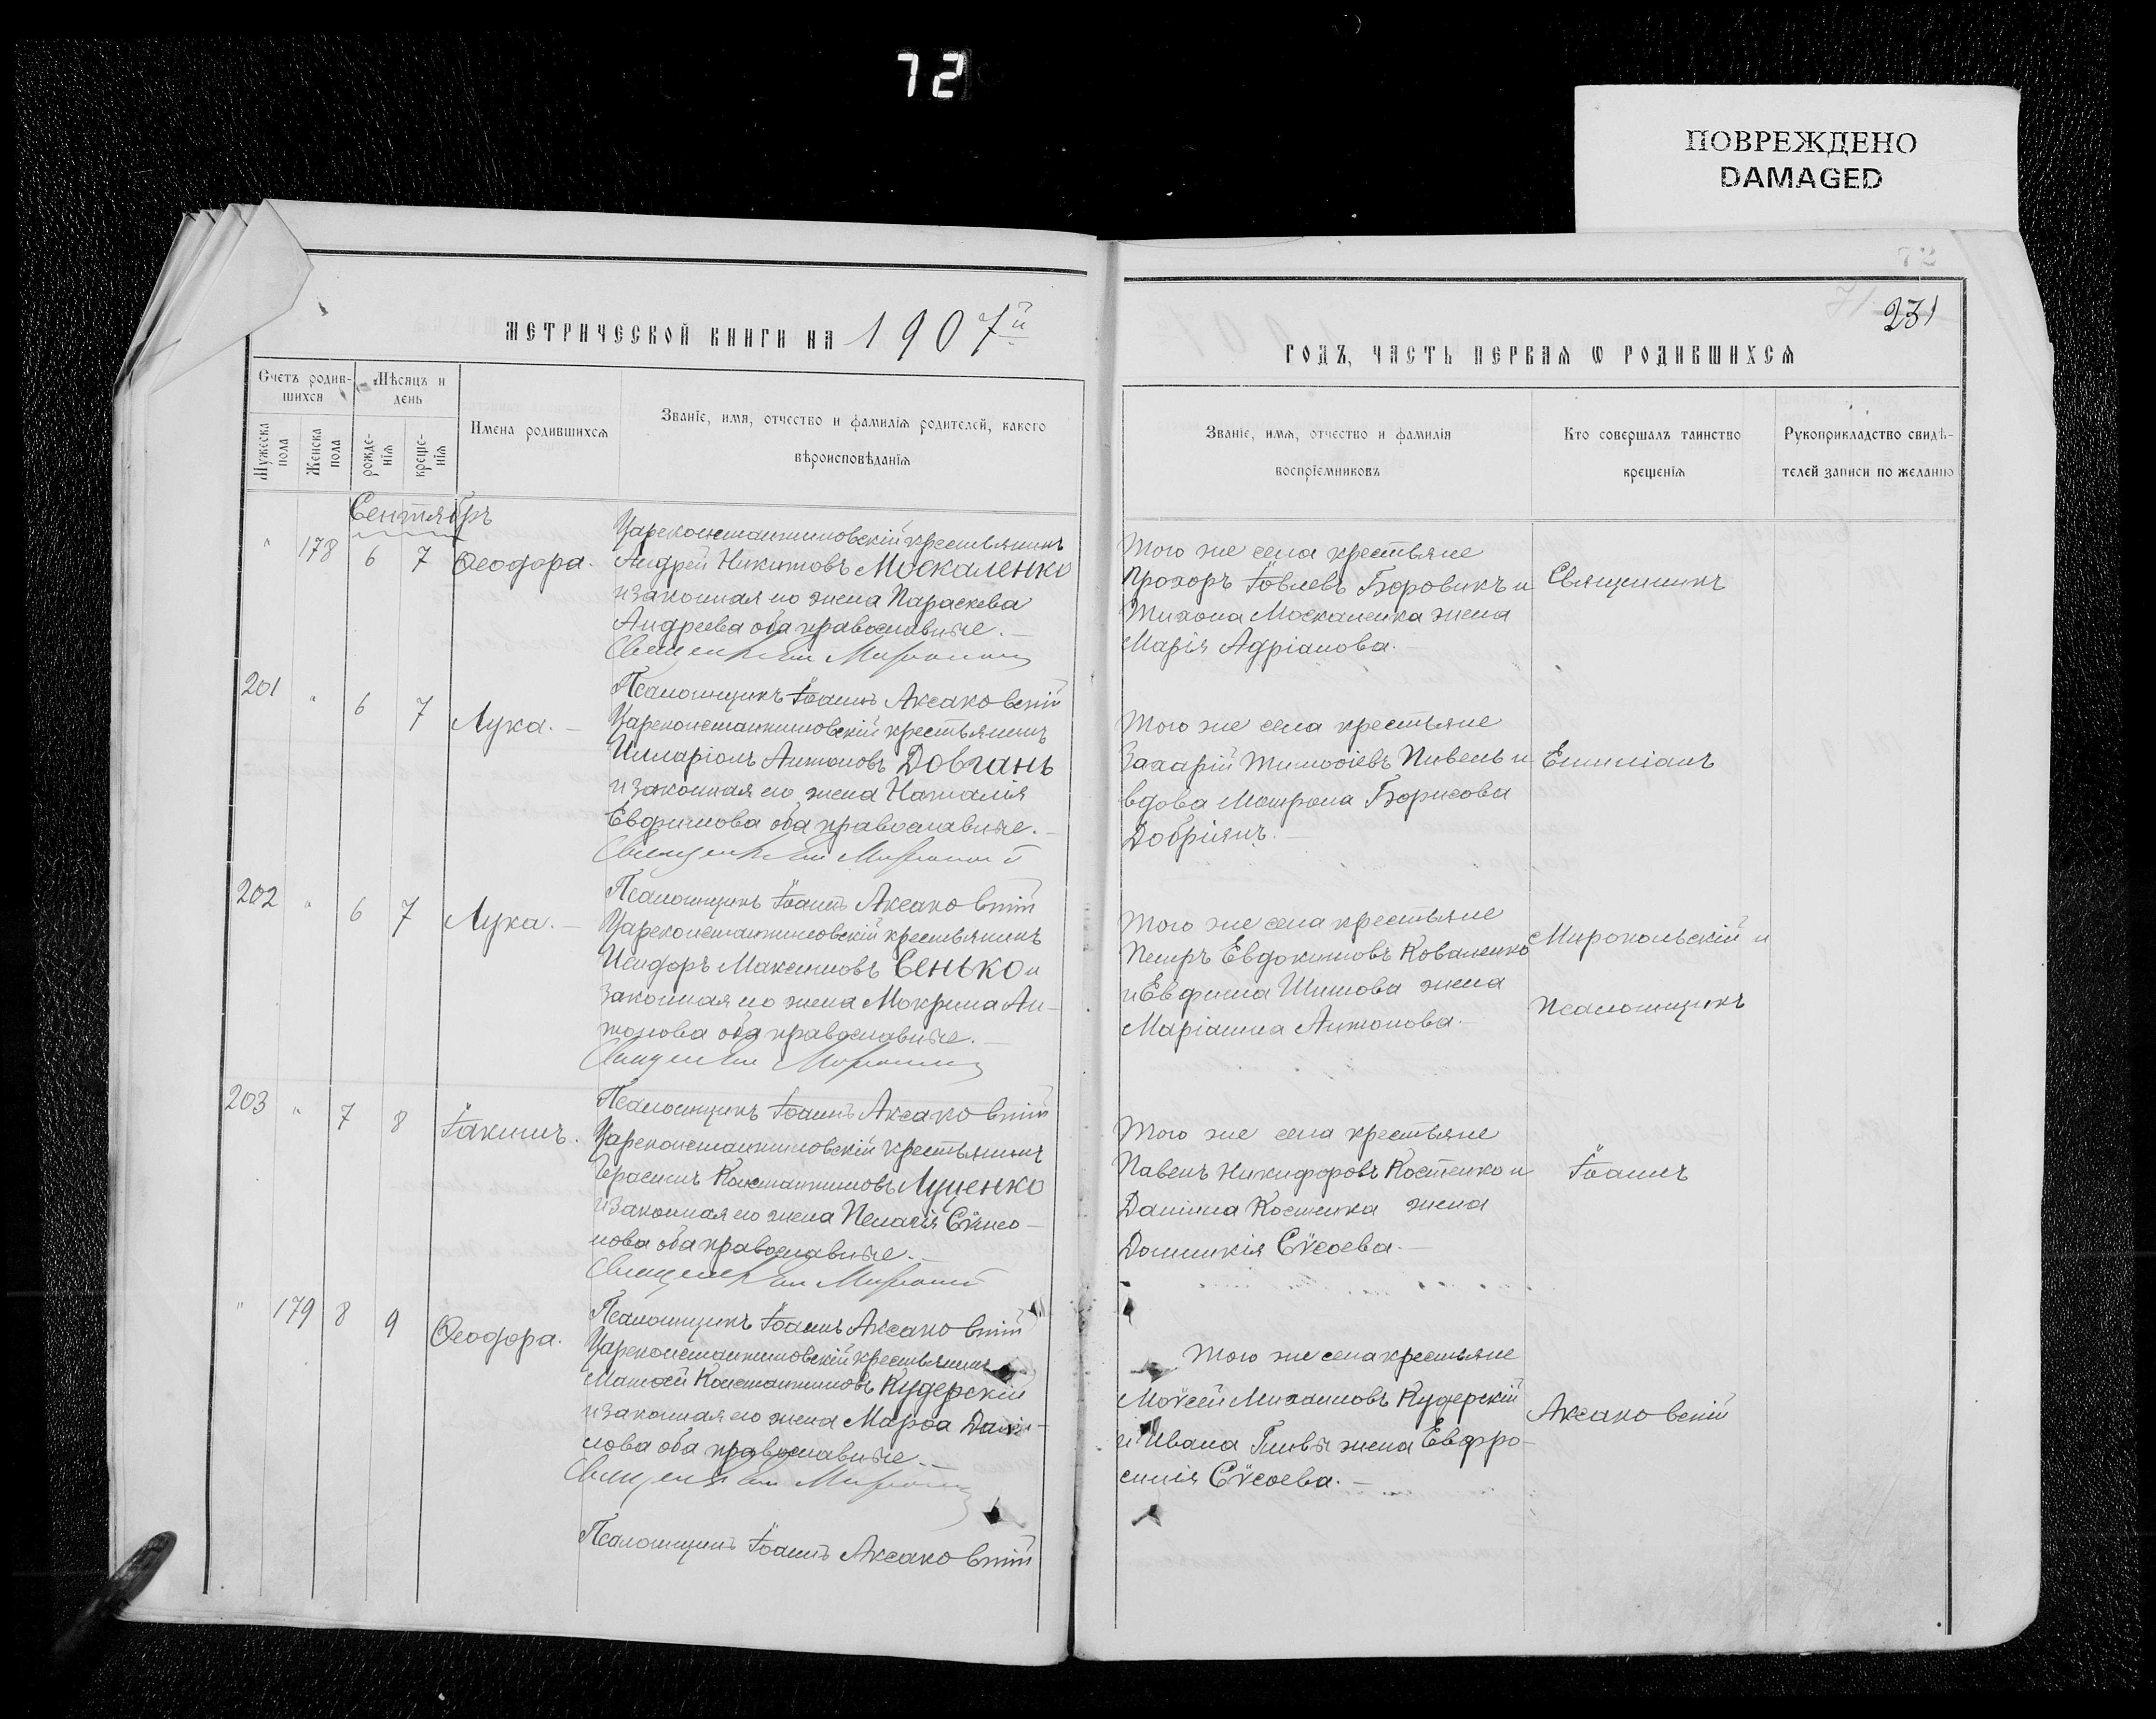 72
ПОВРЕЖДЕНО
DAMAGED
МЕТРИЧЕСКОЙ КНИГИ НА 1907й
Счетъ родив-
шихся
Мѣсяцъ и
день
Мужеска
пола
Женска
пола
рожде-
нія
креще-
нія
Имена родившихся
Званіе, имя, отчество и фамилія родителей, какого
вѣроисповѣданія
Сентябрь
" 178 6 7 Ѳеодора.
Цареконстантиновскій крестьянинъ
Андрей Никитовъ Москаленко
и законная его жена Параскева
Андреева оба православные.
Псаломщикъ Іоаннъ Аксаковскій
201 " 6 7 Лука.
Цареконстантиновскій крестьянинъ
Илларіонъ Антоновъ Довгань
и законная его жена Наталія
Евфимова оба православные.
Псаломщикъ Іоаннъ Аксаковскій
202 " 6 7 Лука.
Цареконстантиновскій крестьянинъ
Исидоръ Максимовъ Сенько и
законная его жена Мокрина Ан-
тонова оба православные.
Псаломщикъ Іоаннъ Аксаковскій
203 " 7 8 Іакимъ.
Цареконстантиновскій крестьянинъ
Герасимъ Константиновъ Луценко
и законная его жена Пелагія Сѵмео-
нова оба православные.
Псаломщикъ Іоаннъ Аксаковскій
" 179 8 9 Ѳеодора.
Цареконстантиновскій крестьянинъ
Матѳей Константиновъ Кудерскій
и законная его жена Марѳа Дани-
лова оба православные.
Псаломщикъ Іоаннъ Аксаковскій
231
ГОДЪ, ЧАСТЬ ПЕРВАЯ Ѡ РОДИВШИХСЯ
Званіе, имя, отчество и фамилія
воспріемниковъ
Кто совершалъ таинство
крещенія
Рукоприкладство свидѣ-
телей записи по желанію
Того же села крестьяне
Прохоръ Іовлевъ Боровикъ и
Тихона Москаленка жена
Марія Адріанова.
Того же села крестьяне
Захарій Тимоѳіевъ Пивень и
вдова Матрона Борисова
Добріянъ.
Того же села крестьяне
Петръ Евдокимовъ Коваленко
и Евфима Шитова жена
Маріанна Антонова.
Того же села крестьяне
Павелъ Никифоровъ Костенко и
Даніила Костенка жена
Домникія Сѵсоева.
Того же села крестьяне
Моѵсей Михаиловъ Кудерскій
и Ивана Гливы жена Евфро-
синія Сѵсоева.
Священникъ
Емиліанъ
Миропольскій и
Псаломщикъ
Іоаннъ
Аксаковскій